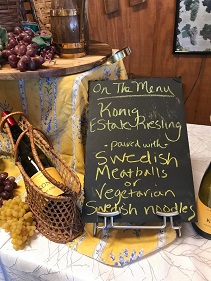 On The Menu
Konig
Estate Riesling
-paired with-
Swedish
Meatballs
or
Vegetarian
Swedish noodles